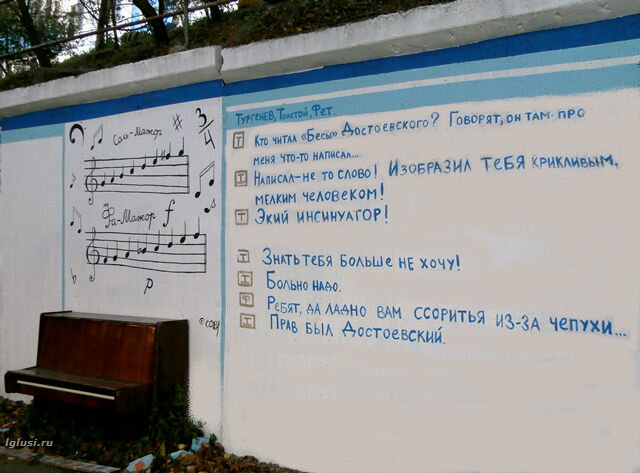 Соль-Мажор
3/4
Фа-Мажор f
p
Тургенев, Толстой, Фет.
Т Кто читал «Бесы» Достоевского? Говорят, он там про
меня что-то написал...
Т Написал-не то слово! Изобразил тебя крикливым,
мелким человеком!
Т Экий инсинуатор!
Т Знать тебя больше не хочу!
Т Больно надо.
Ф Ребят, да ладно вам ссоритья из-за чепухи...
Т Прав был Достоевский.
lglusi.ru